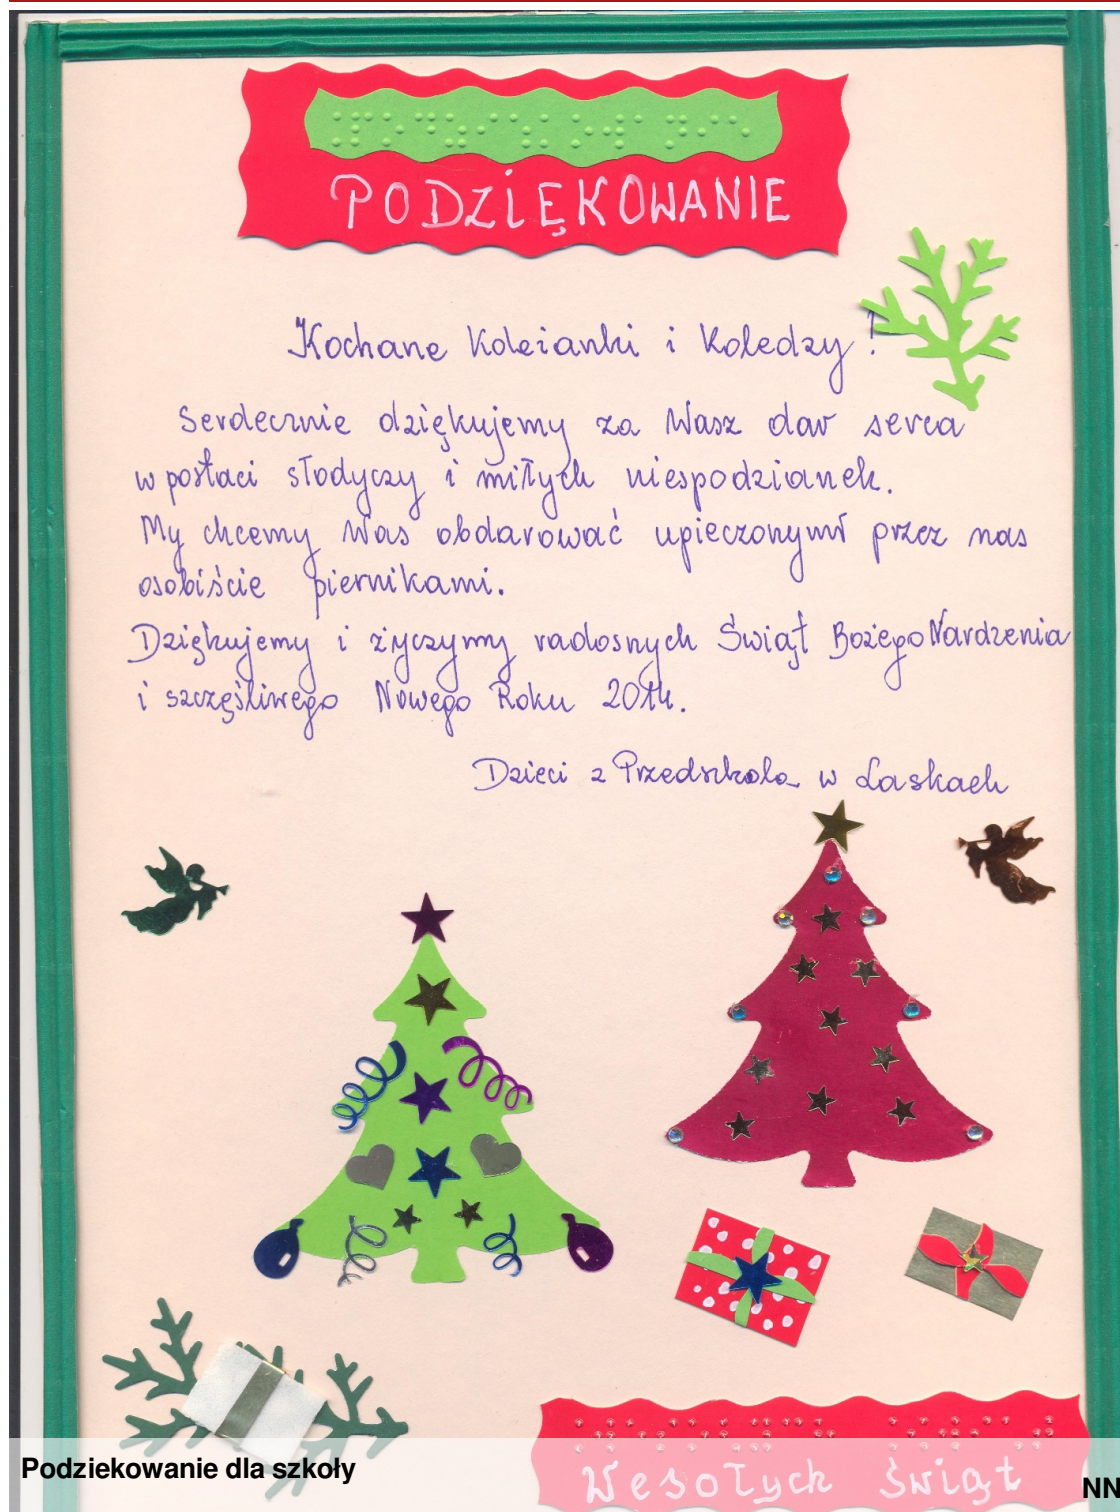 PODZIĘKOWANIE
Kochane Koleżanki i Koledzy!
Serdecznie dziękujemy za Wasz dar serca
w postaci słodyczy i miłych niespodzianek.
My chcemy Was obdarować upieczonymi przez nas
osobiście piernikami.
Dziękujemy i życzymy radosnych Świąt Bożego Nardzenia
i szczęśliwego Nowego Roku 2014.
Dzieci z Przedszkola w Laskach
Podziekowanie dla szkoły
Wesołych Świąt
NN